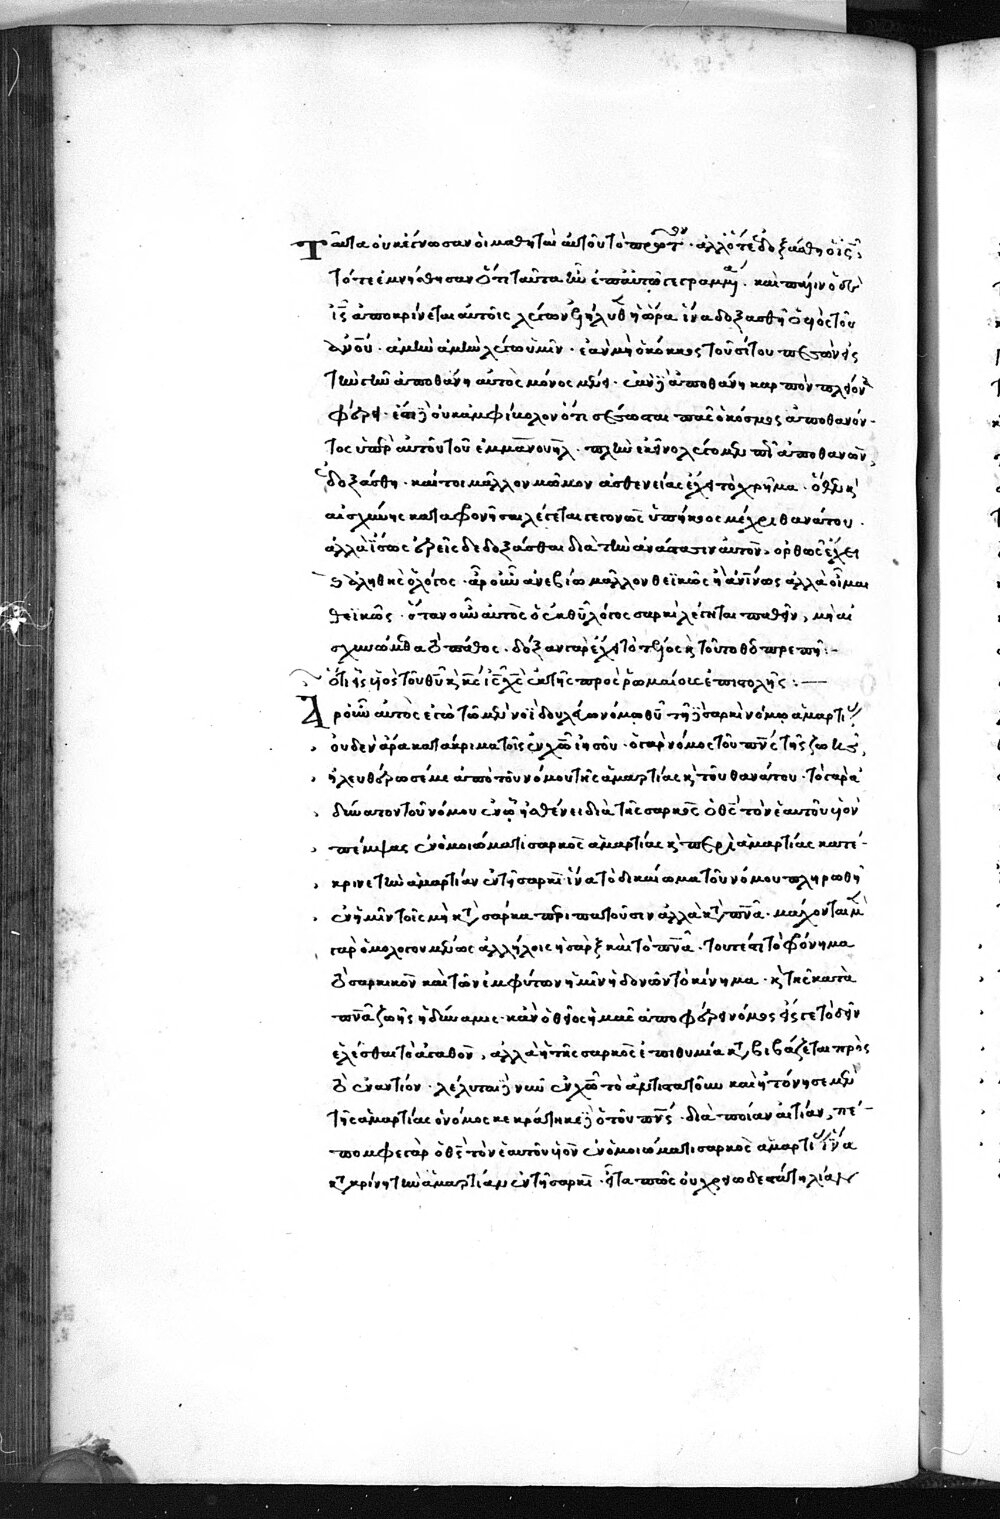 Ταῦτα οὐκ ἔγνωσαν οἱ μαθηταὶ αὐτοῦ τὸ πρῶτον · ἀλλ' ὅτε ἐδοξάσθη ὁ ἰς,
τότε ἐμνήσθησαν ὅτι ταῦτα ἦν ἐπ' αὐτῶ γεγραμμένα · καὶ πάλιν ὁ δὲ
ἰς ἀποκρίνεται αὐτοῖς λέγων ἐλήλυθεν ἡ ὥρα ἵνα δοξασθῆ ὁ υἱὸς τοῦ
ἀνου · ἀμὴν ἀμὴν λέγω ὑμῖν · ἐὰν μὴ ὁ κόκκος τοῦ σίτου πεσὼν εἰς
τὴν γῆν ἀποθάνη αὐτὸς μόνος μένει · ἐὰν δὲ ἀποθάνη καρπὸν πλείονα
φέρει · ἔτι δὲ οὐκ ἀμφίβολον ὅτι σέσωσται πᾶς ὁ κόσμος ἀποθανόν-
τος ὑπὲρ αὐτοῦ τοῦ ἐμμανουήλ · πλὴν ἐκεῖνο λέγομεν ἀποθανὼν,
ἐδοξάσθη · καίτοι μᾶλλον μῶμον ἀσθενείας ἔχει τὸ χρῆμα · ὅθεν κ
αἰσχύνης καταφρονῆσαι λέγεται γεγονὼς ὑπήκοος μέχρι θανάτου ·
ἀλλ' ἴσως ἐρεῖς δεδοξάσθαι διὰ τὴν ἀνάστασιν αὐτὸν, ὀρθῶς ἔχει
κ ἀληθὴς ὁ λόγος · ἆρ' οὖν ἀνεβίω μᾶλλον θεϊκῶς ἢ ἀνίνως ἀλλ' οἶμαι
θεϊκῶς · ὅταν οὖν αὐτὸς ὁ ἐκ θῦ λόγος σαρκὶ λέγηται παθεῖν, μὴ αἰ
σχυνώμεθα τὸ πάθος · δόξαν γὰρ ἔχει τὸ θεῖος κ τοῦτο θεοπρεπῆ :-
ὅτι εἷς υἱὸς τοῦ θῦ κ κς ἰς χς ἐκ τῆς πρὸς ῥωμαίους ἐπιστολῆς :—
Ἄρ' οὖν αὐτὸς ἐγὼ τῶ μὲν νοῒ δουλεύω νόμω θῦ τῆ δὲ σαρκὶ νόμω ἁμαρτίας
οὐδὲν ἄρα κατάκριμα τοῖς ἐν χῶ ἰησοῦ · ὁ γὰρ νόμος τοῦ πνς τῆς ζωῆς,
ἠλευθέρωσέ με ἀπὸ τοῦ νόμου τῆς ἁμαρτίας κ τοῦ θανάτου · τὸ γὰρ ἀ
δύνατον τοῦ νόμου ἐν ὧ ἠσθένει διὰ τῆς σαρκὸς ὁ θς τὸν ἑαυτοῦ υἱὸν
πέμψας ἐν ὁμοιώματι σαρκὸς ἁμαρτίας κ περὶ ἁμαρτίας κατέ-
κρινε τὴν ἁμαρτίαν ἐν τῆ σαρκὶ ἵνα τὸ δικαίωμα τοῦ νόμου πληρωθῆ
ἐν ἡμῖν τοῖς μὴ κατὰ σάρκα περιπατοῦσιν ἀλλὰ κατὰ πνα · μάχονται μὲν
γὰρ ὁμολογουμένως ἀλλήλοις ἡ σὰρξ καὶ τὸ πνα · τουτέστι τὸ φρόνημα
τὸ σαρκικὸν καὶ τῶν ἐμφύτων ἡμῖν ἡδονῶν τὸ κίνημα · κ τῆς κατὰ
πνα ζωῆς ἡ δύναμις · κἂν ὁ θεῖος ἡμᾶς ἀποφέρει νόμος εἴς γε τὸ δεῖν
ἑλέσθαι τὸ ἀγαθὸν, ἀλλ' ἡ τῆς σαρκὸς ἐπιθυμία καταβιβάζεται πρὸς
τὸ ἐναντίον · λέλυται δὲ νῦν ἐν χῶ τὸ ἀντιστατοῦν καὶ ἠτόνησε μὲν
τῆς ἁμαρτίας ὁ νόμος κεκράτηκε δὲ ὁ τοῦ πνς · διὰ ποίαν αἰτίαν, πέ-
πομφε γὰρ ὁ θς τὸν ἑαυτοῦ υἱὸν ἐν ὁμοιώματι σαρκὸς ἁμαρτίας ἵνα
κατακρίνη τὴν ἁμαρτίαν ἐν τῆ σαρκὶ · εἶτα πῶς οὐ χρεωδεστάτη λίαν